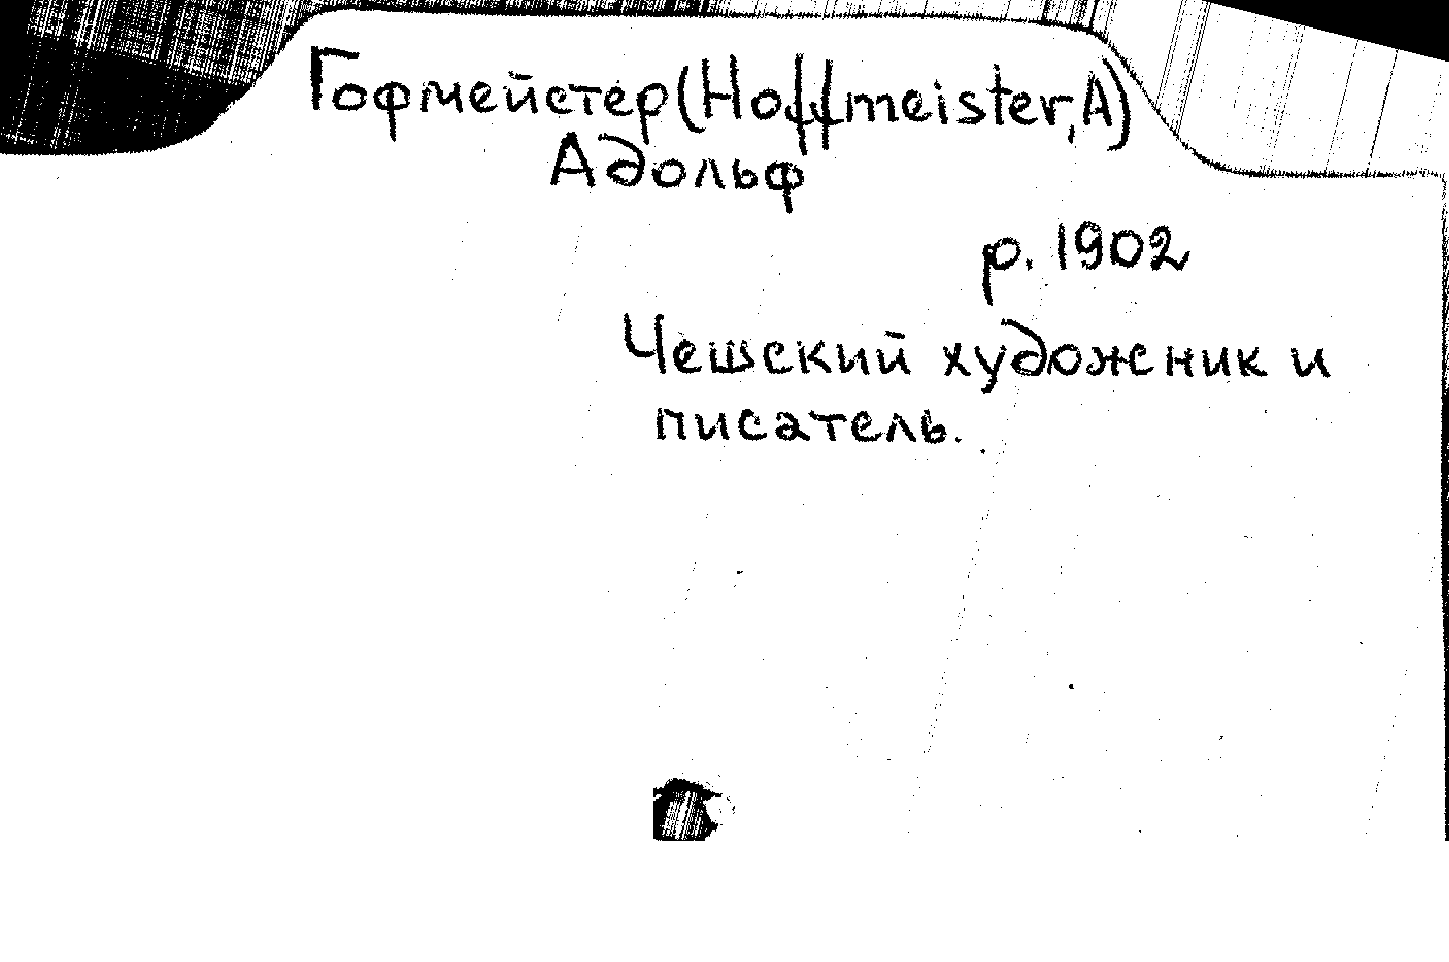 Гофмейстер (Hoffmeister, A)
Адольф
р. 1902
Чешский художник и
писатель.